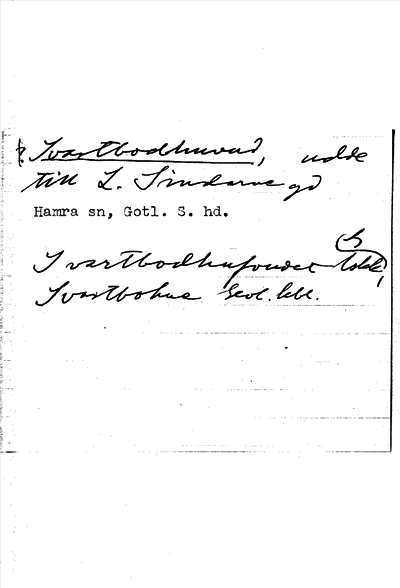 Svartbodhuvud, udde
till L. Sindarve gd
Hamra sn, Gotl. S. hd.
Svartbodhufoudet
Svartbohue Geol. kbl.